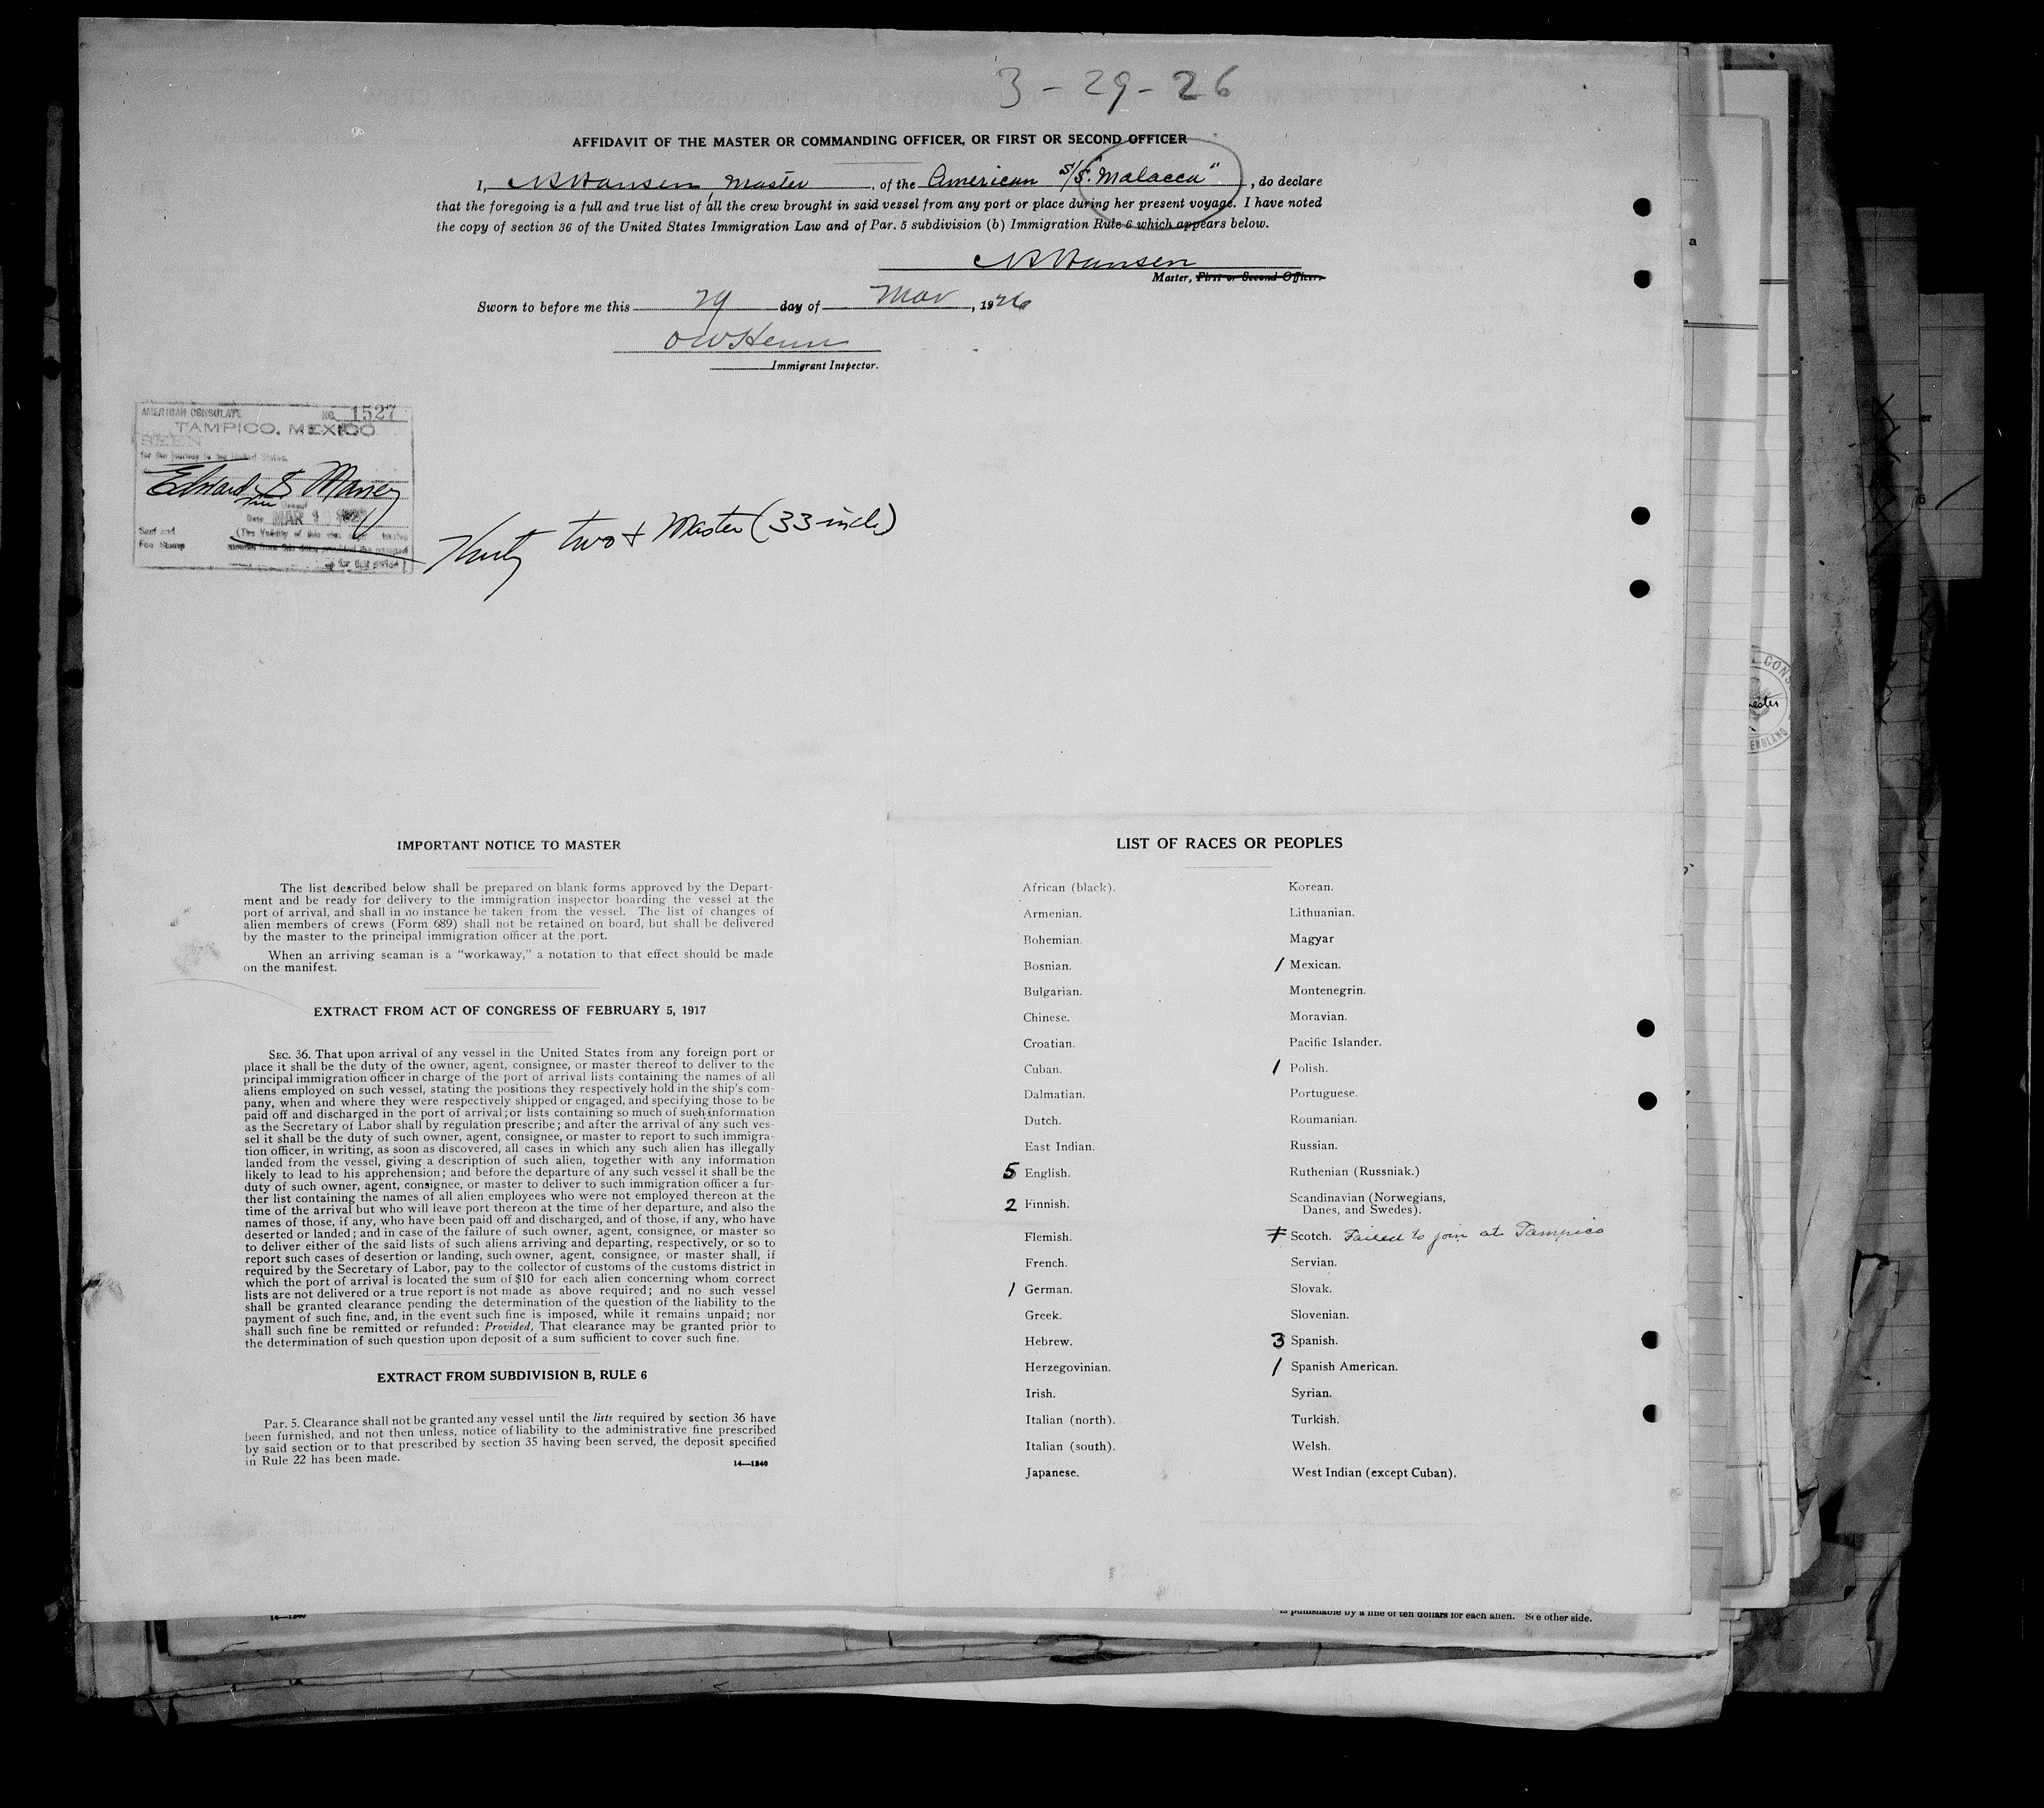 3-29-26
AFFIDAVIT OF THE MASTER OR COMMANDING OFFICER, OR FIRST OR SECOND OFFICER
I, N Hansen, Master, of the American S/S. "Malacca", do declare
that the foregoing is a full and true list of all the crew brought in said vessel from any port or place during her present voyage. I have noted
the copy of section 36 of the United States Immigration Law and of Par. 5 subdivision (b) Immigration Rule 6 which appears below.
Hansen
Master, First or Second Officer.
Sworn to before me this 29 day of Mar, 1926
O W Henn
Immigrant Inspector.
AMERICAN CONSULATE NO. 1527
TAMPICO, MEXICO
SEEN
for the journey to the United States.
Edward S Maney
Vice Consul
Date MAR
Seal and
Fee Stamp
for this period
Thirty two + Master (33 incl)
IMPORTANT NOTICE TO MASTER
The list described below shall be prepared on blank forms approved by the Depart-
ment and be ready for delivery to the immigration inspector boarding the vessel at the
port of arrival, and shall in no instance be taken from the vessel. The list of changes of
alien members of crews (Form 689) shall not be retained on board, but shall be delivered
by the master to the principal immigration officer at the port.
When an arriving seaman is a "workaway," a notation to that effect should be made
on the manifest.
EXTRACT FROM ACT OF CONGRESS OF FEBRUARY 5, 1917
SEC. 36. That upon arrival of any vessel in the United States from any foreign port or
place it shall be the duty of the owner, agent, consignee, or master thereof to deliver to the
principal immigration officer in charge of the port of arrival lists containing the names of all
aliens employed on such vessel, stating the positions they respectively hold in the ship's com-
pany, when and where they were respectively shipped or engaged, and specifying those to be
paid off and discharged in the port of arrival; or lists containing so much of such information
as the Secretary of Labor shall by regulation prescribe; and after the arrival of any such ves-
sel it shall be the duty of such owner, agent, consignee, or master to report to such immigra-
tion officer, in writing, as soon as discovered, all cases in which any such alien has illegally
landed from the vessel, giving a description of such alien, together with any information
likely to lead to his apprehension; and before the departure of any such vessel it shall be the
duty of such owner, agent, consignee, or master to deliver to such immigration officer a fur-
ther list containing the names of all alien employees who were not employed thereon at the
time of the arrival but who will leave port thereon at the time of her departure, and also the
names of those, if any, who have been paid off and discharged, and of those, if any, who have
deserted or landed; and in case of the failure of such owner, agent, consignee, or master so
to deliver either of the said lists of such aliens arriving and departing, respectively, or so to
report such cases of desertion or landing, such owner, agent, consignee, or master shall, if
required by the Secretary of Labor, pay to the collector of customs of the customs district in
which the port of arrival is located the sum of $10 for each alien concerning whom correct
lists are not delivered or a true report is not made as above required; and no such vessel
shall be granted clearance pending the determination of the question of the liability to the
payment of such fine, and, in the event such fine is imposed, while it remains unpaid; nor
shall such fine be remitted or refunded: Provided, That clearance may be granted prior to
the determination of such question upon deposit of a sum sufficient to cover such fine.
EXTRACT FROM SUBDIVISION B, RULE 6
Par. 5. Clearance shall not be granted any vessel until the lists required by section 36 have
been furnished, and not then unless, notice of liability to the administrative fine prescribed
by said section or to that prescribed by section 35 having been served, the deposit specified
in Rule 22 has been made.
14—1240
LIST OF RACES OR PEOPLES
African (black).
Armenian.
Bohemian.
Bosnian.
Bulgarian.
Chinese.
Croatian.
Cuban.
Dalmatian.
Dutch.
East Indian.
5 English.
2 Finnish.
Flemish.
French.
1 German.
Greek.
Hebrew.
Herzegovinian.
Irish.
Italian (north).
Italian (south).
Japanese.
Korean.
Lithuanian.
Magyar
1 Mexican.
Montenegrin.
Moravian.
Pacific Islander.
1 Polish.
Portuguese.
Roumanian.
Russian.
Ruthenian (Russniak.)
Scandinavian (Norwegians,
Danes, and Swedes).
1 Scotch. Failed to join at Tampico
Servian.
Slovak.
Slovenian.
3 Spanish.
1 Spanish American.
Syrian.
Turkish.
Welsh.
West Indian (except Cuban).
14—1240
is punishable by a fine of ten dollars for each alien. See other side.
CONS
ENGLAND